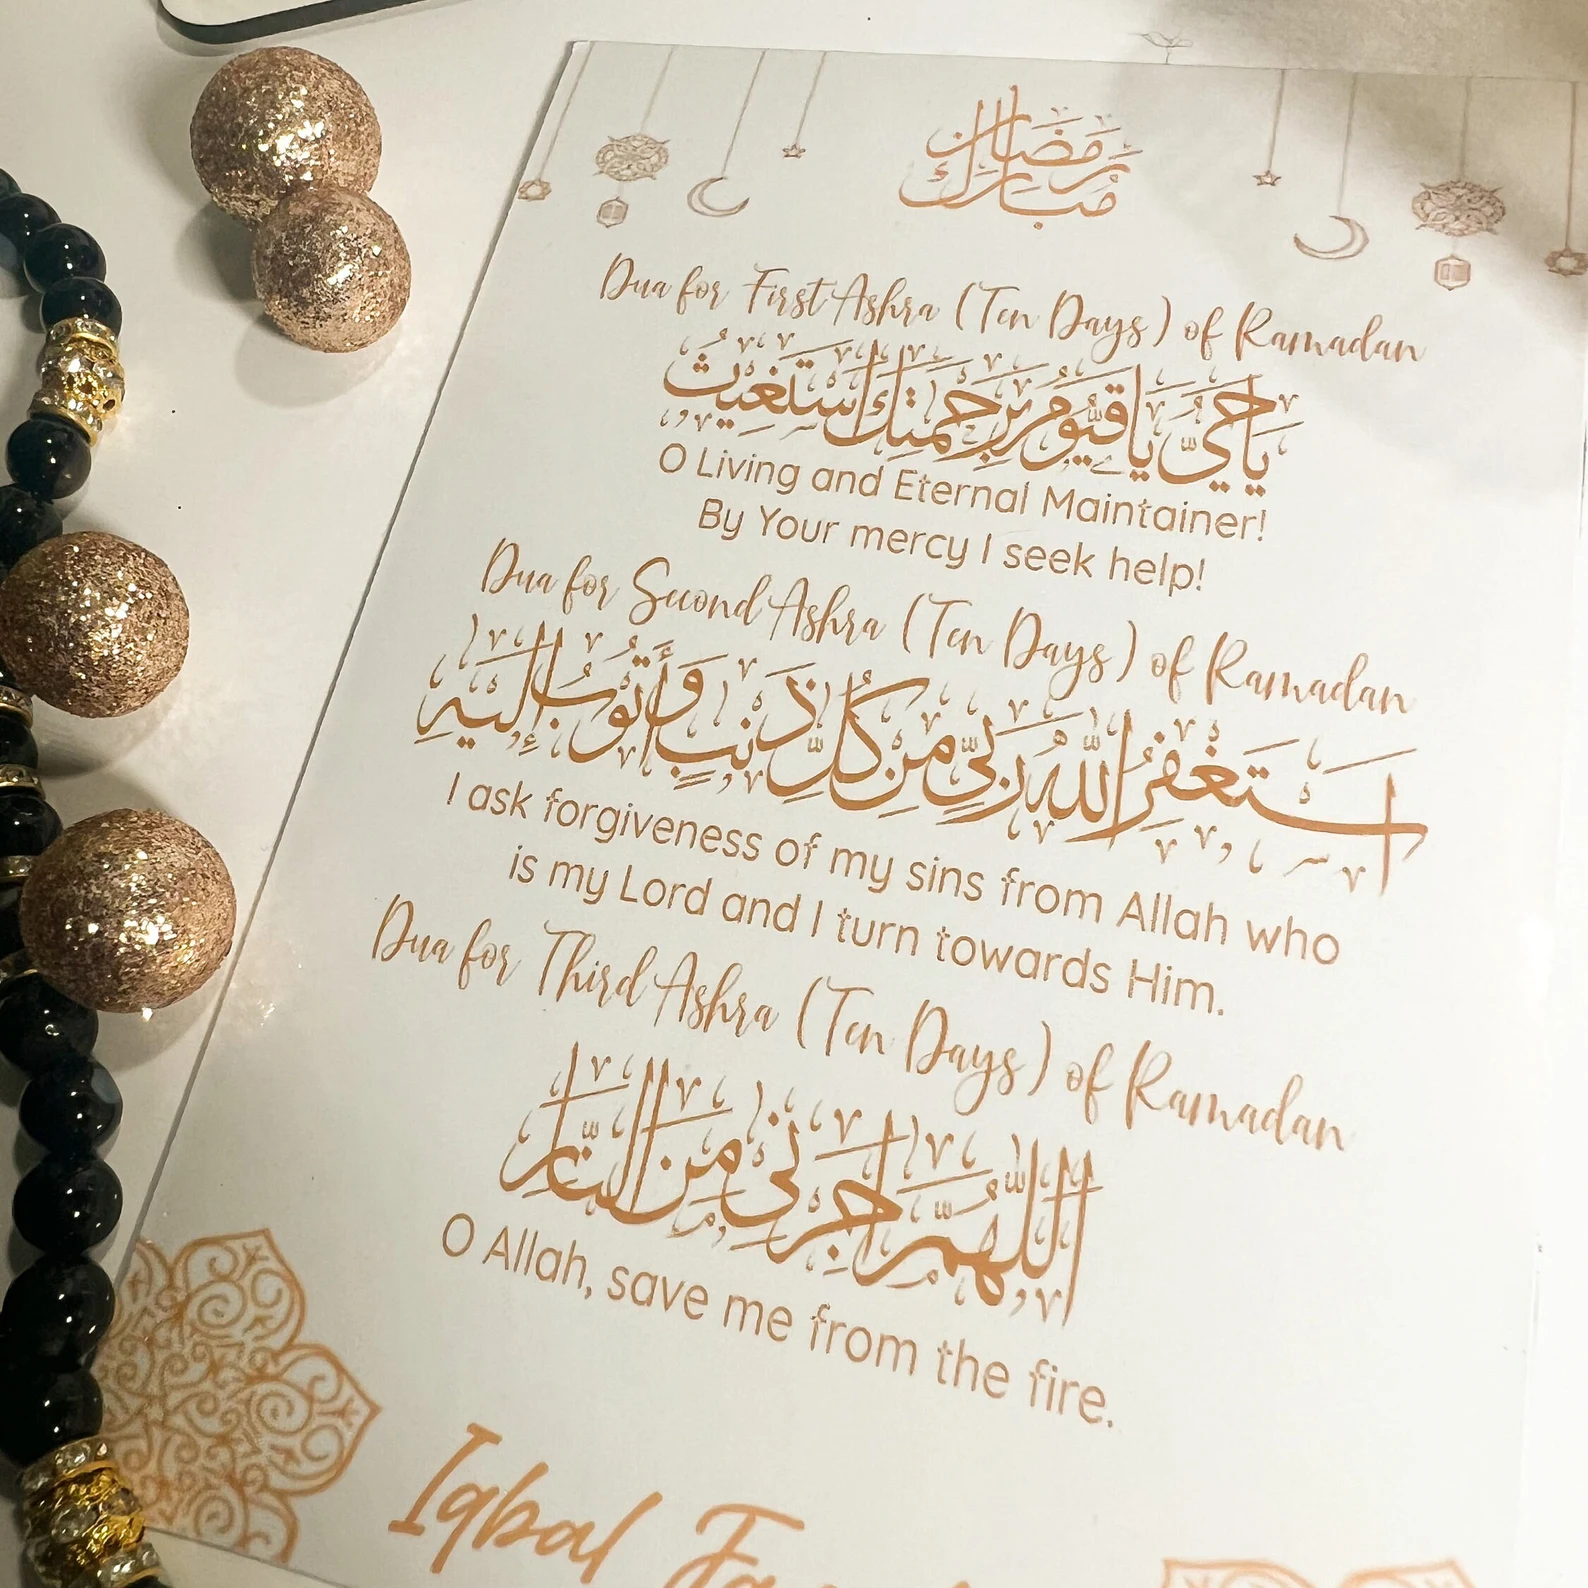 رمضان مبارك
Dua for First Ashra (Ten Days) of Ramadan
يَا حَيُّ يَا قَيُّومُ بِرَحْمَتِكَ أَسْتَغِيثُ
O Living and Eternal Maintainer!
By Your mercy I seek help!
Dua for Second Ashra (Ten Days) of Ramadan
اَسْتَغْفِرُ اللهَ رَبِّي مِنْ كُلِّ ذَنْبٍ وَأَتُوبُ إِلَيْهِ
I ask forgiveness of my sins from Allah who
is my Lord and I turn towards Him.
Dua for Third Ashra (Ten Days) of Ramadan
اَللّٰهُمَّ اَجِرْنِي مِنَ النَّارِ
O Allah, save me from the fire.
Iqbal